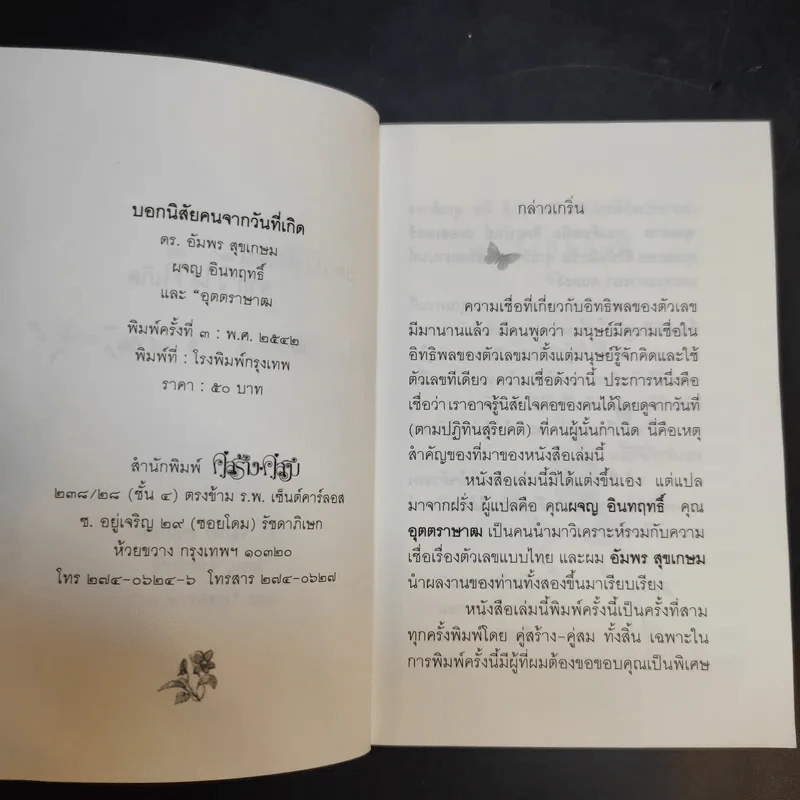 บอกนิสัยคนจากวันที่เกิด
ดร. อัมพร สุขเกษม
ผจญ อินทฤทธิ์
และ "อุตตราษาฒ
พิมพ์ครั้งที่ ๓ : พ.ศ. ๒๕๔๒
พิมพ์ที่ : โรงพิมพ์กรุงเทพ
ราคา : ๕๐ บาท
สำนักพิมพ์ คู่สร้าง-คู่สม
๒๓๘/๒๘ (ชั้น ๔) ตรงข้าม ร.พ. เซ็นต์คาร์ลอส
ซ. อยู่เจริญ ๒๙ (ซอยโดม) รัชดาภิเษก
ห้วยขวาง กรุงเทพฯ ๑๐๓๒๐
โทร ๒๗๔-๐๖๒๔-๖ โทรสาร ๒๗๔-๐๖๒๗
กล่าวเกริ่น
ความเชื่อที่เกี่ยวกับอิทธิพลของตัวเลข
มีมานานแล้ว มีคนพูดว่า มนุษย์มีความเชื่อใน
อิทธิพลของตัวเลขมาตั้งแต่มนุษย์รู้จักคิดและใช้
ตัวเลขทีเดียว ความเชื่อดังว่านี้ ประการหนึ่งคือ
เชื่อว่าเราอาจรู้นิสัยใจคอของคนได้โดยดูจากวันที่
(ตามปฏิทินสุริยคติ) ที่คนผู้นั้นกำเนิด นี่คือเหตุ
สำคัญของที่มาของหนังสือเล่มนี้
หนังสือเล่มนี้มิได้แต่งขึ้นเอง แต่แปล
มาจากฝรั่ง ผู้แปลคือ คุณผจญ อินทฤทธิ์ คุณ
อุตตราษาฒ เป็นคนนำมาวิเคราะห์รวมกับความ
เชื่อเรื่องตัวเลขแบบไทย และผม อัมพร สุขเกษม
นำผลงานของท่านทั้งสองขึ้นมาเรียบเรียง
หนังสือเล่มนี้พิมพ์ครั้งนี้เป็นครั้งที่สาม
ทุกครั้งพิมพ์โดย คู่สร้าง-คู่สม ทั้งสิ้น เฉพาะใน
การพิมพ์ครั้งนี้มีผู้ที่ผมต้องขอขอบคุณเป็นพิเศษ